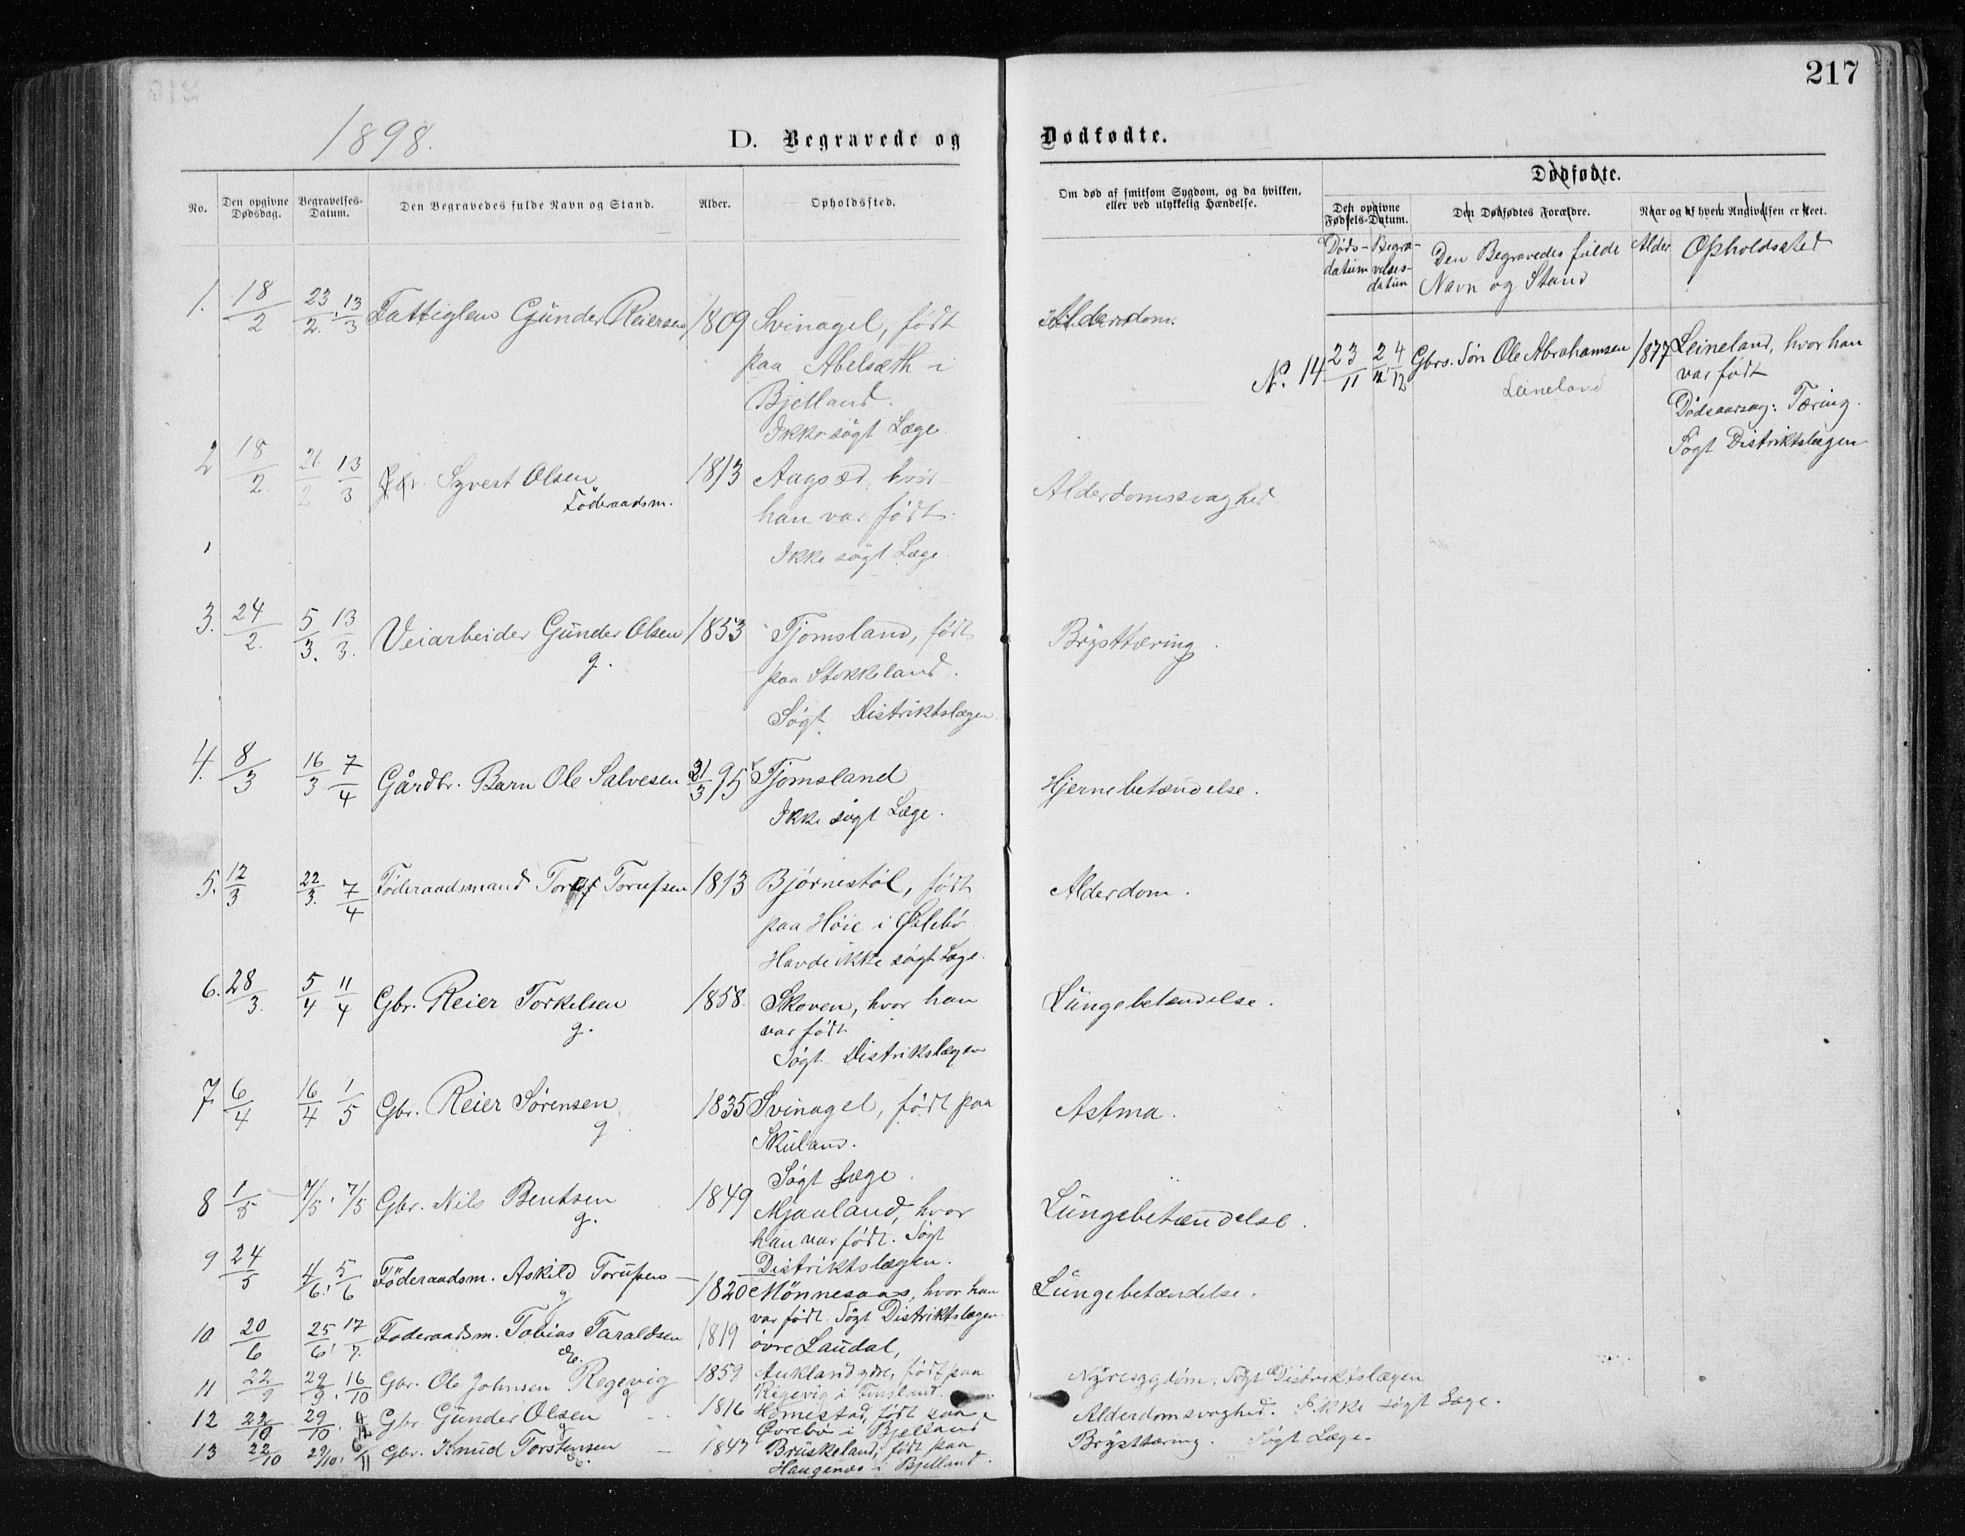 217
1898.
D. Begravede og Dødfødte.
No.
Den opgivne Dødsdag.
Begravelses-Datum.
Den Begravedes fulde Navn og Stand.
Alder.
Opholdssted.
Om død af smitsom Sygdom, og da hvilken, eller ved ulykkelig Hændelse.
Dødfødte.
Den opgivne Fødsels-Datum.
Den Dødfødtes Forældre.
Naar og af hvem Angivelsen er skeet.
Døds-datum
Begravelses-datum
Den Begravedes fulde Navn og Stand
Alder
Opholdssted
1. 18/2 23/2. 13/3 Fattiglem Gunder Reiersen 1809 Svinagel, født Alderdom.
paa Abelsæth i
Bjelland.
Ikke søgt Læge
N. 14 23/11 24/12 Gbrs. Søn Ole Abrahamsen 1877 Leineland, hvor han
Leineland var født
Dødsaarsag: Tæring.
Søgt Distriktslægen
2 18/2. 21/2 13/3 Syvert Olsen 1813 Aagsæd, hvor Alderdomssvaghed
Föderaadsm. han var født.
Ikke søgt Læge
3. 24/2. 5/3. 13/3. Veiarbeider Gunder Olsen 1853 Tjomsland, født Brysttæring.
g. paa Stokkeland.
Søgt Distriktslægen
4. 8/3 16/3 7/4 Gårdbr. Barn Ole Salvesen 21/3 95 Tjomsland Hjernebetændelse.
Ikke søgt Læge.
5. 12/3 22/3. 7/4 Föderaadsmand Toruf Torufsen 1813 Bjørnestøl, født Alderdom.
paa Høie i Øslebø
Havde ikke søgt Læge.
6. 28/3. 5/4 11/4 Gbr. Reier Torkelsen 1858. Skoven, hvor han Lungebetændelse.
g. var født
Søgt Distrikslægen
7 6/4 16/4 1/5 Gbr. Reier Sørensen 1835 Svinagel, født paa Astma.
g. Skuland.
Søgt Læge.
8 1/5 7/5. 7/5 Gbr. Nils Bentsen 1849 Mjaaland, hvor Lungebetændelse.
g. han var født. Søgt
Distriktslægen.
9 24/5 4/6. 5/6 Föderaadsm. Askild Torufsen 1820 Mønnesaas, hvor han Lungebetændelse.
g var født. Søgt Distriktslægen
10 20/6 25/6. 17/7. Føderaadsm. Tobias Taraldsen 1819 øvre Laudal,
e.
11 22/9 29/9. 16/10 Gbr. Ole Johnsen Regevig 1859 Aukland ydre, født paa Nyresygdom. Søgt Distriktslægen
g Regevig i Finsland.
12 22/10 29/10. Gbr. Gunder Olsen 1816 Homestad, født paa Alderdomsvaghed. Ikke søgt Læge.
g Øvrebø i Bjelland
13 22/10 29/10. 6/11 Gbr. Knud Torstensen 1847 Bruskeland, født paa Brysttæring. Søgt Læge.
Haugenæs i Bjelland.